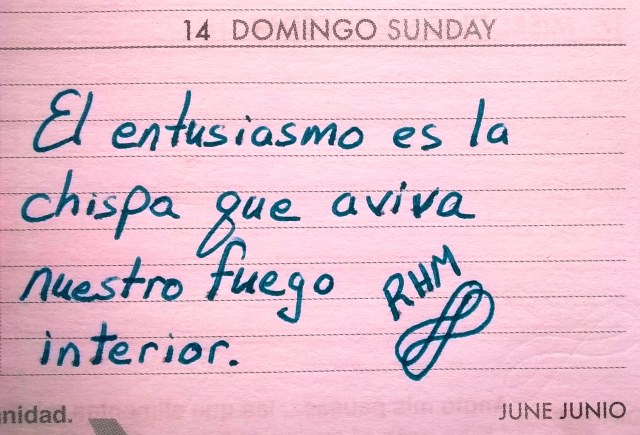 14 DOMINGO SUNDAY
El entusiasmo es la
chispa que aviva
nuestro fuego
RHM
interior.
nidad.
JUNE JUNIO